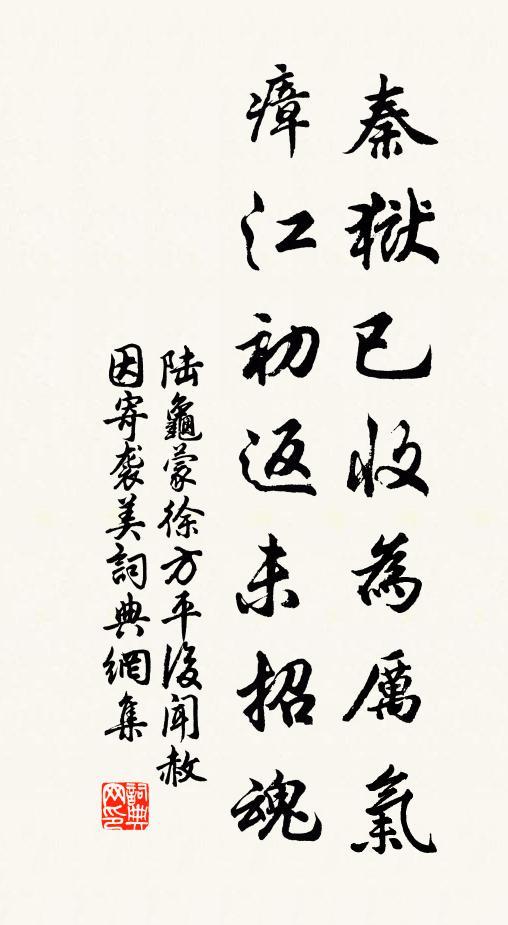 秦獄已收為厲氣
瘴江初返未招魂
陸龜蒙徐方平後聞赦
因寄襲美詞典網集
詞典网印